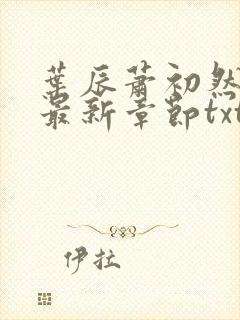 葉辰蕭初然
最新章節txt
伊拉